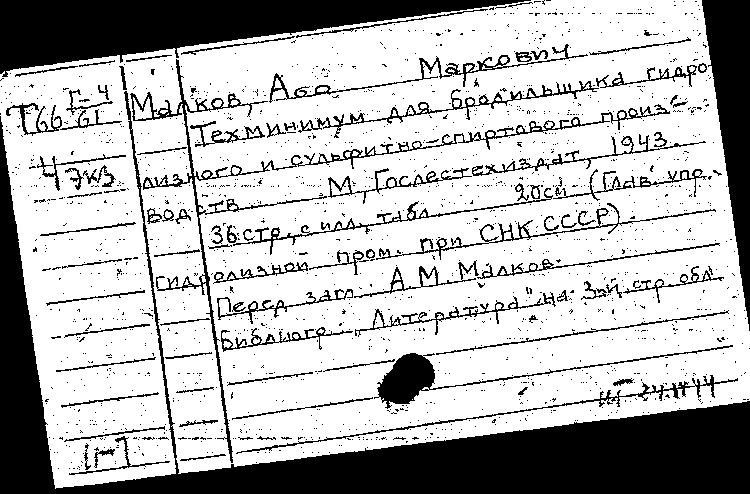 Т66 Г-4/61
Малков, Або Маркович
Техминимум для бродильщика гидро
4 экз
лизного и сульфитно-спиртового произ-
водств М., Гослестехиздат, 1943.
36 стр., с илл., табл. 20см (Глав. упр.
гидролизной пром. при СНК СССР).
Перед загл. А. М. Малков.
Библиогр. „Литература" на 3-ей стр. обл.
[1-]